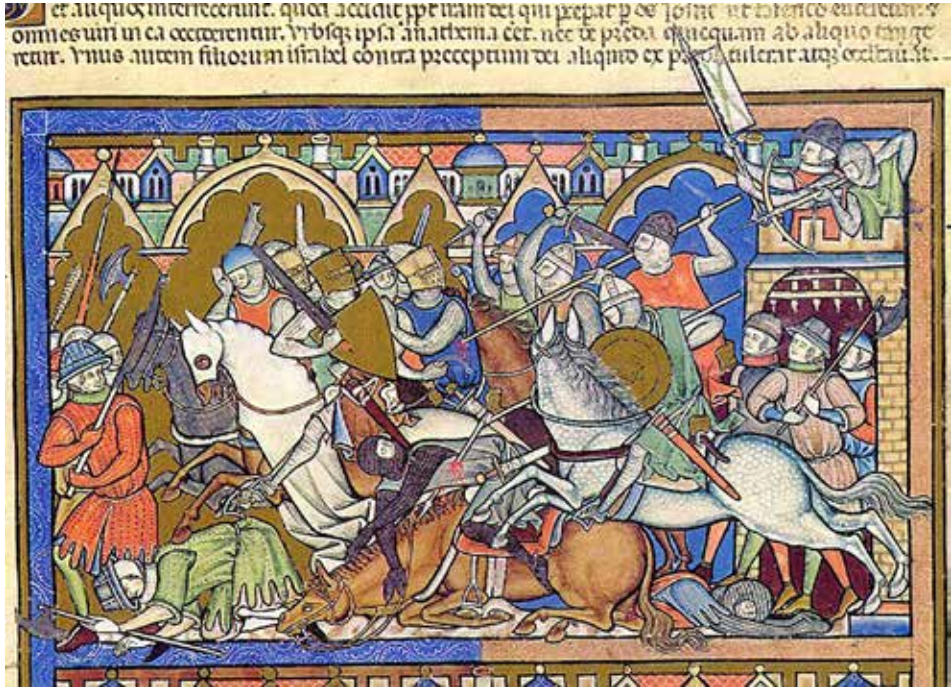 et aliquos interfecerunt. quod accidit ppt iram dei qui p os iosue ut
omnes uiri in ea occiderentur. Vrbsq; ipsa anathema eet. nec de preda quicquam ab aliquo tange
retur. Vnus autem filiorum israhel contra preceptum dei aliquid ex tulerat atq; occultauit.